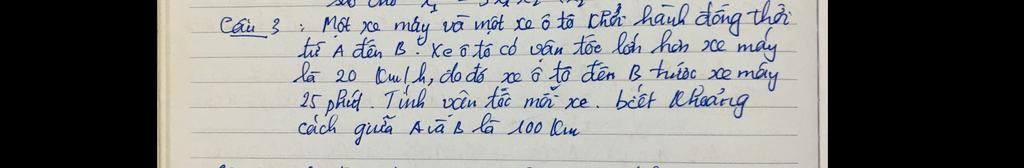 Câu 3 : Một xe máy và một xe ô tô khởi hành đồng thời
từ A đến B. Xe ô tô có vận tốc lớn hơn xe máy
là 20 Km/h, do đó xe ô tô đến B trước xe máy
25 phút. Tính vận tốc mỗi xe. biết khoảng
cách giữa A và B là 100 Km